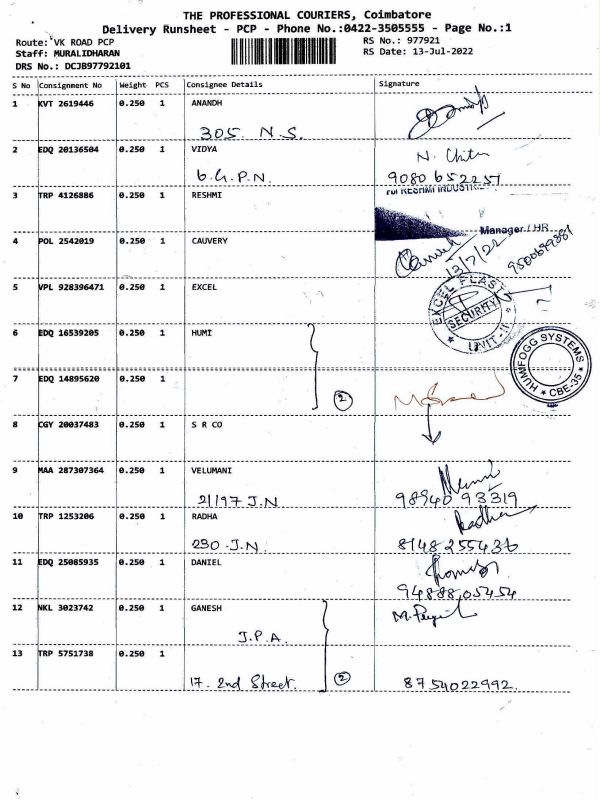 THE PROFESSIONAL COURIERS, Coimbatore
Delivery Runsheet - PCP - Phone No.:0422-3505555 - Page No.:1
Route: VK ROAD PCP
RS No.: 977921
Staff: MURALIDHARAN
RS Date: 13-Jul-2022
DRS No.: DCJB97792101
S No Consignment No Weight PCS Consignee Details Signature
1 KVT 2619446 0.250 1 ANANDH
305. N.S.
2 EDQ 20136504 0.250 1 VIDYA
b.G.P.N. 9080652257
3 TRP 4126886 0.250 1 RESHMI
For RESHMI INDUSTRI
Manager / HR
4 POL 2542019 0.250 1 CAUVERY
13/7/22
5 VPL 928396471 0.250 1 EXCEL
EXCEL PLAST
SECURITY
UNIT-II
6 EDQ 16539205 0.250 1 HUMI
HUMIFOGG SYSTEMS
* CBE-35 *
7 EDQ 14895620 0.250 1
2
8 CGY 20037483 0.250 1 S R CO
9 MAA 287307364 0.250 1 VELUMANI
21/197 J.N 98940 93319
10 TRP 1253206 0.250 1 RADHA
Radha
230 - J.N. 8148255436
11 EDQ 25085935 0.250 1 DANIEL
9488805454
12 NKL 3023742 0.250 1 GANESH
J.P.A.
13 TRP 5751738 0.250 1
17. 2nd Street. 2 8754022992.